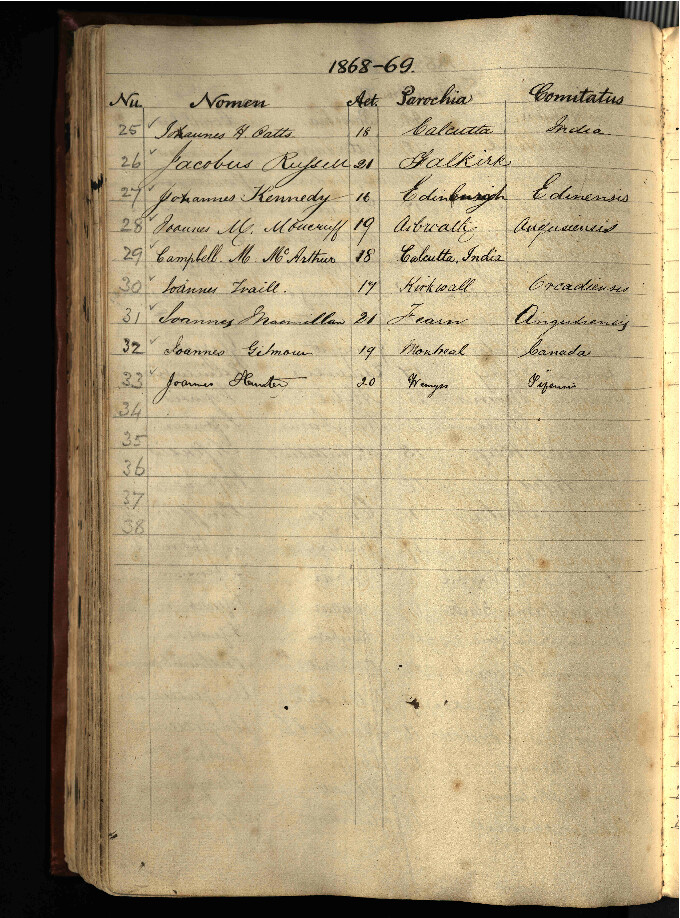 1868-69.
Nu Nomen Aet. Parochia Comitatus
25 Johannes H Oatts 18 Calcutta India
26 Jacobus Russell 21 Falkirk
27 Johannes Kennedy 16 Edinburgh Edinensis
28 Joannes M. Moncrieff 19 Arbroath Angusiensis
29 Campbell. M. McArthur 18 Calcutta, India
30 Ioannes Traill. 17 Kirkwall Orcadiensis
31 Ioannes Macmillan 21 Fearn Angusiensis
32 Ioannes Gilmour 19 Montreal Canada
33 Joannes Hunter 20 Wemyss Fifensis
34
35
36
37
38